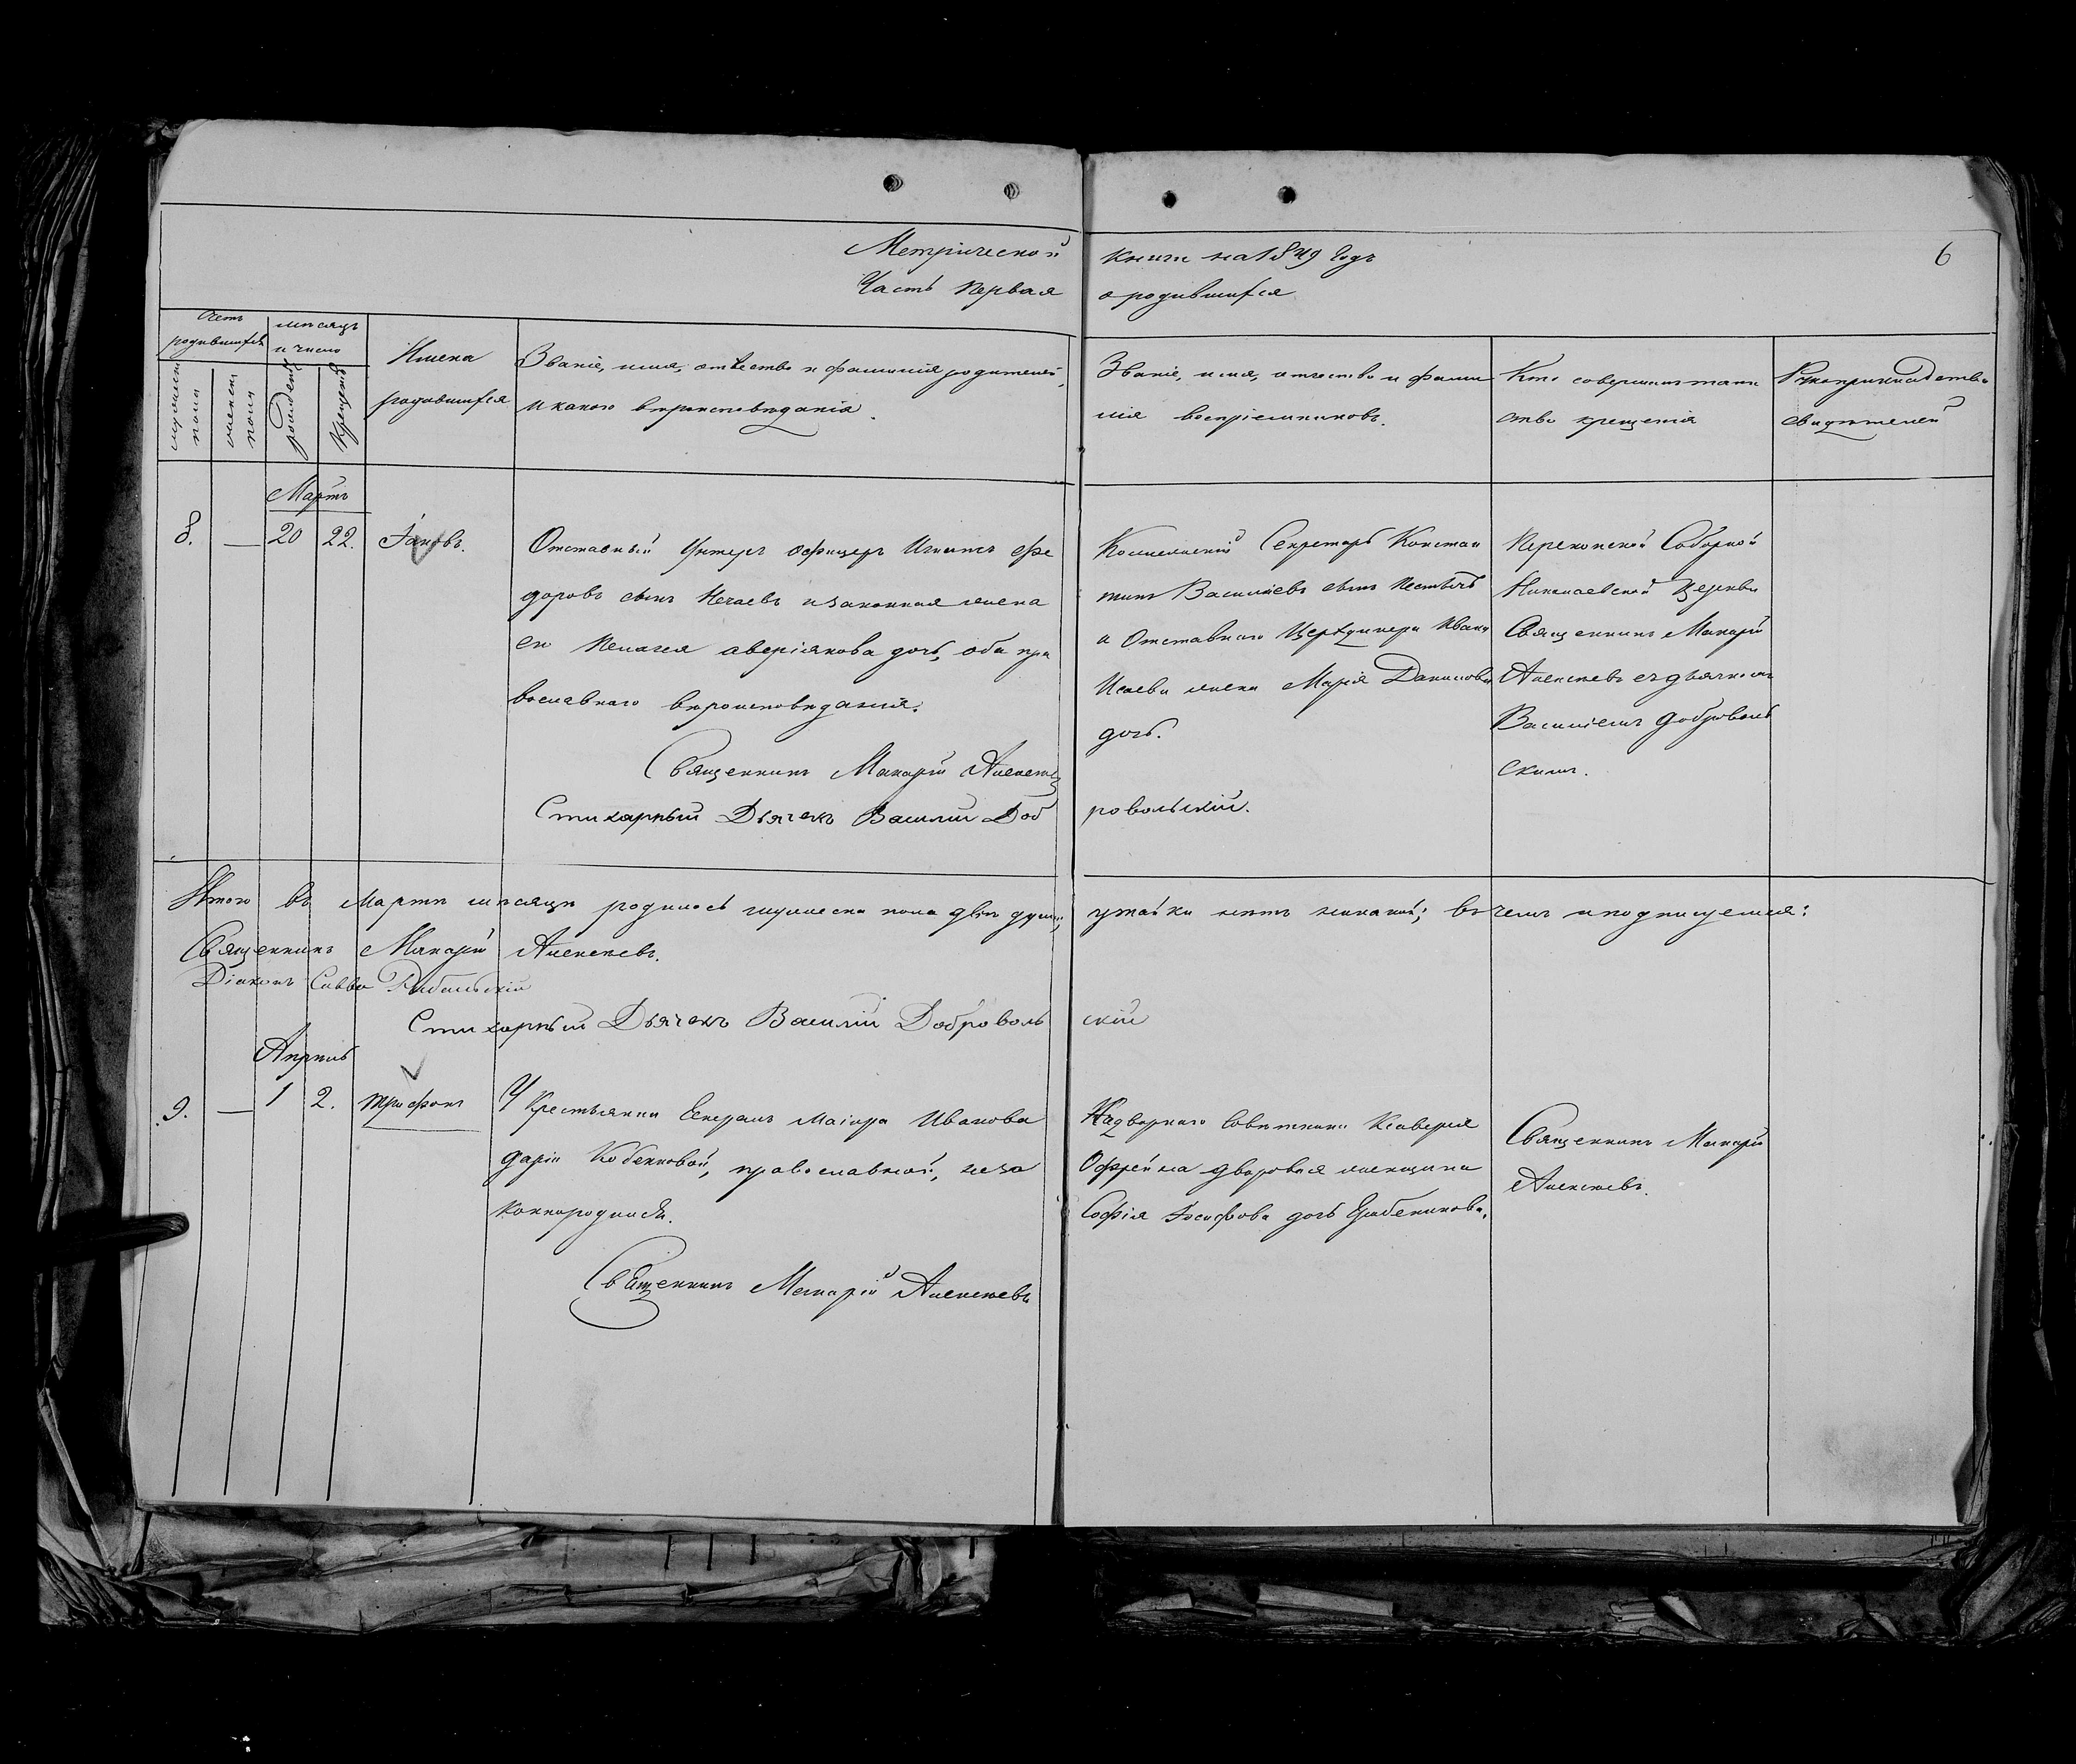 Метрической
книги на 1849 годъ
6
Часть первая
о родившихся
Счетъ родившихся
мѣсяцъ и число
мужеска пола
женска пола
рожденія
крещенія
Имена
родившихся
Званіе, имя, отчество и фамилія родителей,
и какого вѣроисповѣданія.
Званіе, имя, отчество и фами
лія воспріемниковъ.
Кто совершилъ таин
ство крещенія
Рукоприкладство
свидѣтелей
Мартъ
8. — 20 22. Іаковъ.
Отставный Унтеръ офицеръ Игнатъ Фе
доровъ сынъ Нечаевъ и законная жена
его Пелагея Аверіянова дочь, оба пра
вославнаго вѣроисповѣданія.
Священникъ Макарій Алексѣев
Стихарный Дьячекъ Василій Доб
ровольскій.
Коллежскій Секретарь Констан
тинъ Васильевъ сынъ
и Отставнаго Ивана
Исаева жена Марія Данилова
дочь.
Перекопской Соборной
Николаевской Церкви
Священникъ Макарій
Алексѣевъ съ дьячкомъ
Василіемъ Доброволь
скимъ.
Итого въ Мартѣ мѣсяцѣ родилось мужеска пола двѣ души,
утайки нѣтъ никакой; въ чемъ и подписуемся:
Священникъ Макарій Алексѣевъ.
Діаконъ Савва
Стихарный Дьячекъ Василій Доброволь
скій
Апрѣль
9. — 1 2. Трифонъ
У Крестьянки Генералъ Маіора Иванова
Даріи Кобенковой, православной, неза
коннорожденъ.
Священникъ Макарій Алексѣевъ
Надворнаго Совѣтника Ксаверія
дворовая женщина
Софія Іосифова дочь
Священникъ Макарій
Алексѣевъ.